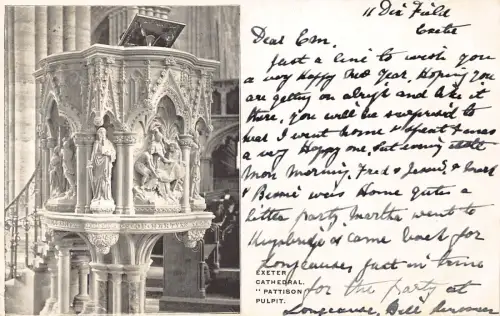 11 Dix Field
Exeter
Dear Em.
Just a line to wish you
a very Happy New Year. Hoping you
are getting on alright and like it
there. You will be surprised to
hear I went home & spent Xmas
a very Happy one, but coming
Mon morning. Fred &
& Bessie were Home quite a
little party Martha went to
& came back for
Longcause just in time
for the party at
Longcause, Bill
EXETER
CATHEDRAL.
"PATTISON"
PULPIT.